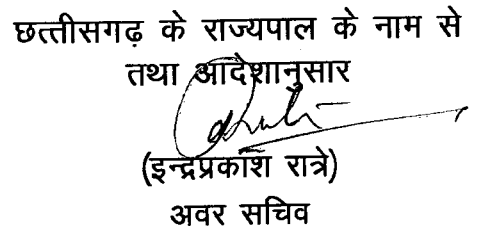 छत्तीसगढ़ के राज्यपाल के नाम से
तथा आदेशानुसार
(इन्द्रप्रकाश रात्रे)
अवर सचिव